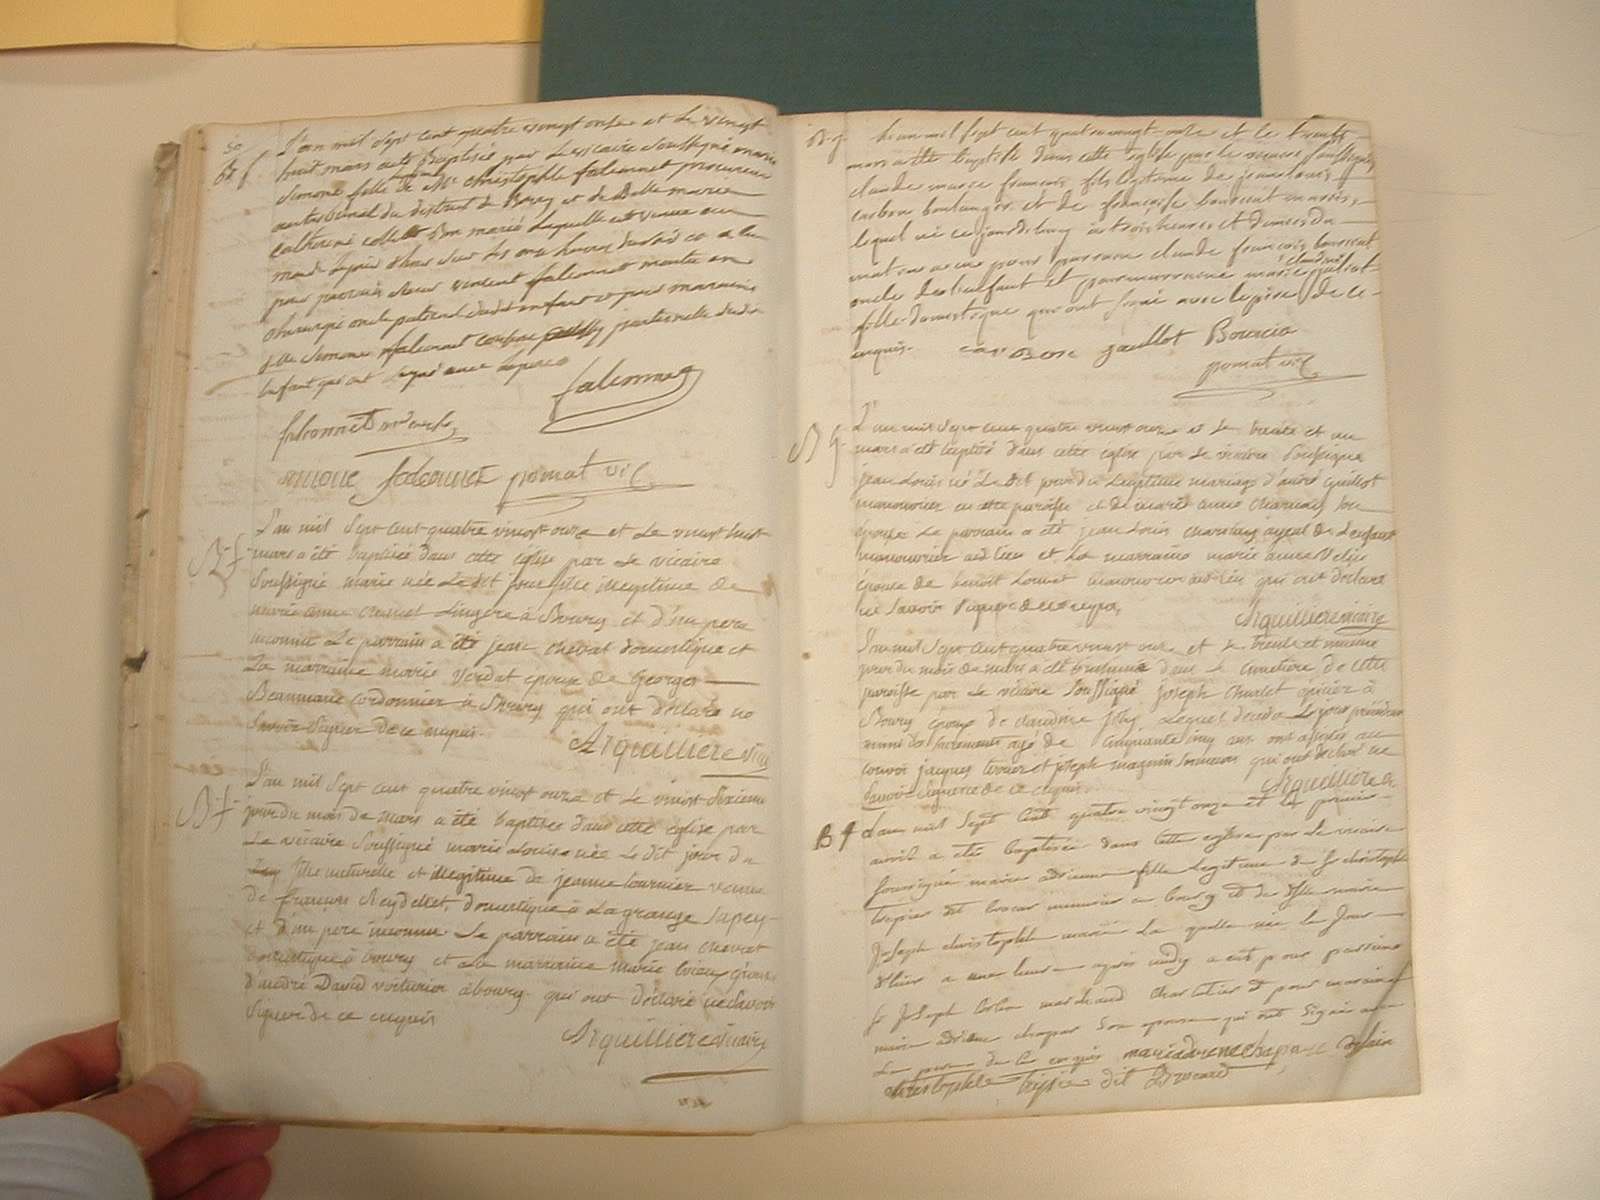 50
B f
L'an mil Sept cent quatre vingt onze et le vingt
huit mars a été Baptisée par Le vicaire Soussigné marie
Simone fille de Mr Christophle falconnet procureur
au tribunal du district de Bourg et de dlle marie
Catherine mariés laquelle est venue au
monde sur les onze heures
pour parrain Sieur vincent falconnet maitre en
chirurgie oncle paternel dudit enfant et pour marraine
dlle Simone falconnet paternelle dudit
Enfant qui ont Signé avec Le pere
falconnet
falconnet
Simone falconnet pomat vic
B. f.
L'an mil Sept cent quatre vingt onze et Le vingt huit
mars a été baptisée dans cette eglise par Le vicaire
Soussigné marie née Le dit jour fille illegitime de
marie anne chanel Lingere à Bourg et d'un pere
inconnu Le parrain a été jean chevat domestique et
La marraine marie Verdat epouse de Georges
Beaumane cordonnier à Bourg qui ont déclaré ne
Savoir Signer de ce enquis.
Arquilliere vic
B. f.
L'an mil Sept cent quatre vingt onze et Le vingt Sixieme
jour du mois de mars a été baptisée dans cette eglise par
Le vicaire Soussigné marie Louise née Le dit jour
fille naturelle et illegitime de jeanne tournier veuve
de françois Reydellet, domestique à La grange
et d'un pere inconnu Le parrain a été jean chevat
domestique à bourg et La marraine marie epouse
d'andré David voiturier à bourg qui ont déclaré ne Savoir
Signer de ce enquis
Arquilliere vicaire
B. g.
L'an mil sept cent quatre vingt onze et le trente
mars a été baptisé dans cette eglise par le vicaire soussigné
claude marie françois fils legitime de jean louis
carbon boulanger et de françoise bourcat mariés,
lequel né ce jourd'huy à trois heures et demies du
matin a eu pour parrain claude françois bourcat
oncle de l'enfant et pour marraine marie claudine guillot
fille domestique qui ont signé avec le pere de ce
enquis. carbon guillot Bourcia
pomat vic
B g
L'an mil Sept cent quatre vingt onze et Le trente et un
mars a été baptisé dans cette eglise par Le vicaire Soussigné
jean Louis né Le dit jour du Legitime mariage d'andré guillot
manouvrier en cette paroisse et de marie anne Charnay son
epouse Le parrain a été jean Louis Charnay ayeul de L'enfant
manouvrier audit lieu et La marraine marie anne
epouse de benoit Louvet manouvrier audit lieu qui ont déclaré
ne Savoir Signer de ce enquis,
Arquilliere vicaire
L'an mil Sept cent quatre vingt onze et Le trente et unieme
jour du mois de mars a été inhumé dans Le cimetiere de cette
paroisse par Le vicaire Soussigné joseph Charlet épicier à
Bourg epoux de claudine joly Lequel decedé Le jour précédent
muni des Sacrements agé de cinquante cinq ans ont assisté au
convoi jacques terrier et joseph magnin Sonneurs qui ont déclaré ne
Savoir Signer de ce enquis.
Arquilliere v
B f
L'an mil Sept Cent quatre vingt onze et le premier
avril a été baptisée dans Cette eglise par le vicaire
Soussigné marie adrienne fille Legitime de Sr christophle
trepier dit brocar menuisier a bourg et de dlle marie
joseph christophle mariés La quelle née le jour
d'hier a une heure après midy a eut pour parrain
Sr joseph marchand Charcutier et pour marraine
marie adriene chapas Son epouse qui ont Signé avec
Le pere de Ce enquis marie adrene chapas
christophle trepier dit Brocard